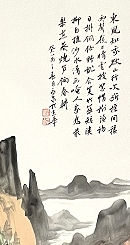 東風知我欲山行吹斷簷間積
雨聲嶺上晴雲披絮帽樹頭初
日掛銅鉦野桃含笑竹籬短溪
柳自搖沙水清西崦人家應最
樂煮葵燒筍餉春耕